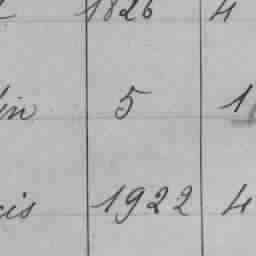 1826 4
in 5 1
cis 1922 4